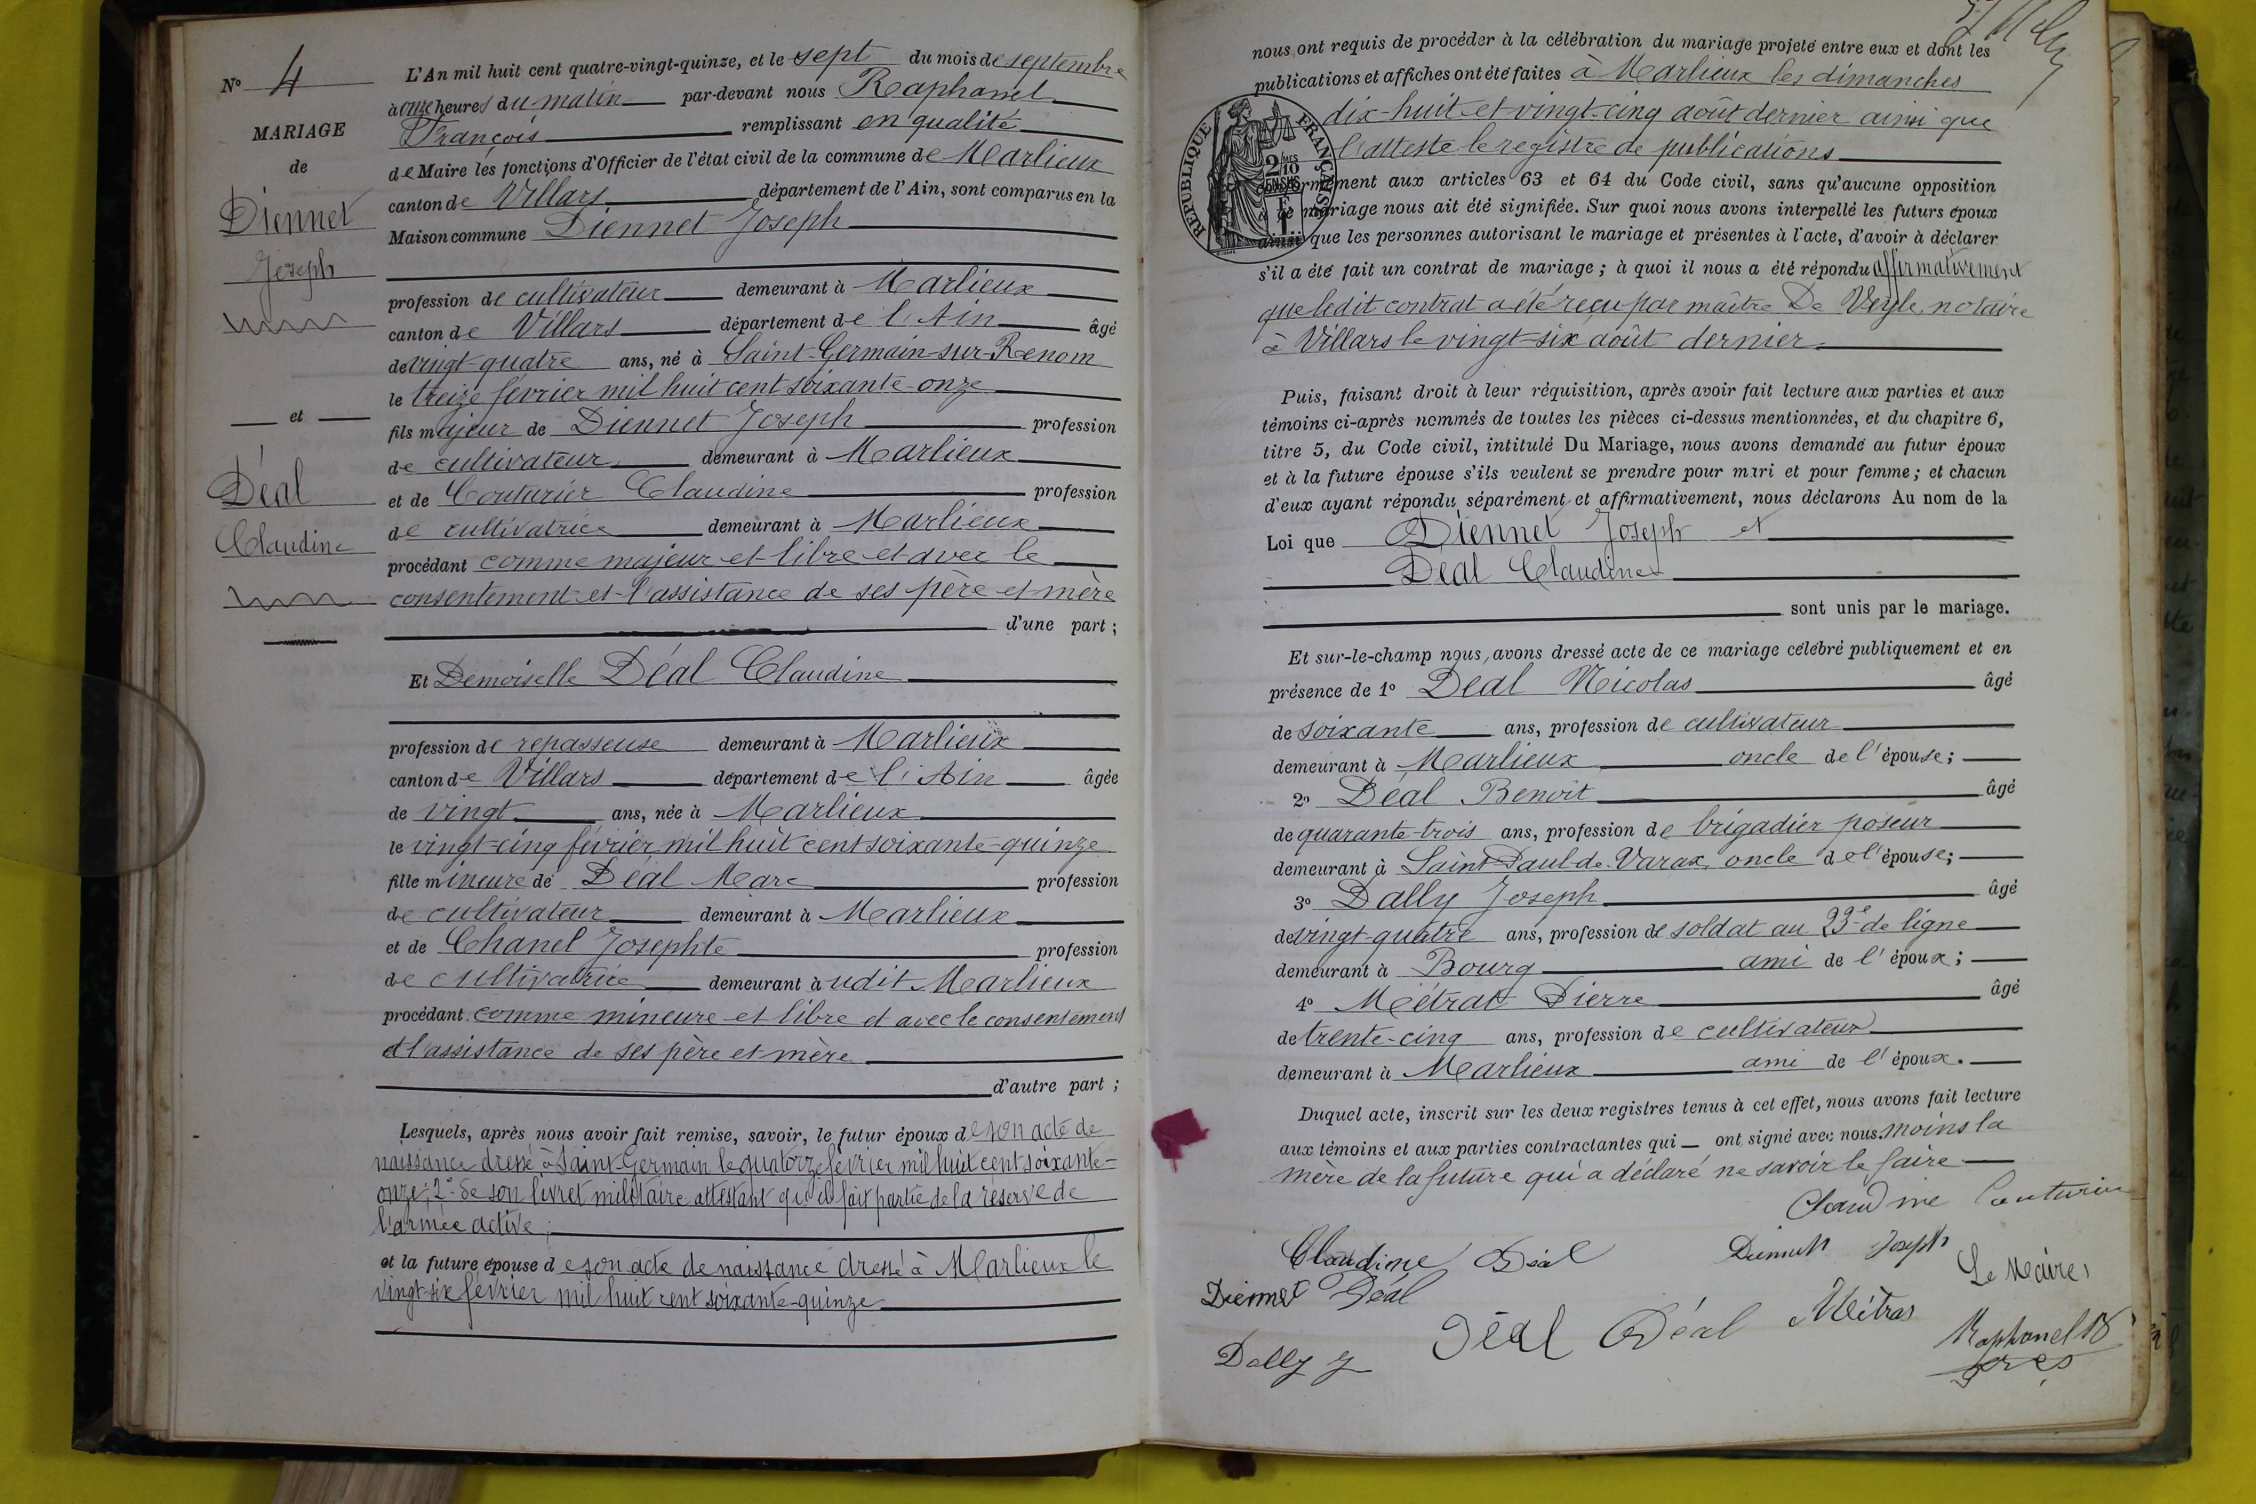 N° 4
MARIAGE
de
Diennet
Joseph
et
Déal
Claudine
L'An mil huit cent quatre-vingt-quinze, et le sept du mois de septembre
à onze heures du matin par-devant nous Raphanel
François remplissant en qualité
de Maire les fonctions d'Officier de l'état civil de la commune de Marlieux
canton de Villars département de l'Ain, sont comparus en la
Maison commune Diennet Joseph
profession de cultivateur demeurant à Marlieux
canton de Villars département de l'Ain âgé
de vingt-quatre ans, né à Saint-Germain-sur-Renom
le treize février mil huit cent soixante-onze
fils majeur de Diennet Joseph profession
de cultivateur demeurant à Marlieux
et de Couturier Claudine profession
de cultivatrice demeurant à Marlieux
procédant comme majeur et libre et avec le
consentement et l'assistance de ses père et mère
d'une part ;
Et Demoiselle Déal Claudine
profession de repasseuse demeurant à Marlieux
canton de Villars département de l'Ain âgée
de vingt ans, née à Marlieux
le vingt-cinq février mil huit cent soixante-quinze
fille mineure de Déal Marc profession
de cultivateur demeurant à Marlieux
et de Chanel Josephte profession
de cultivatrice demeurant àudit Marlieux
procédant comme mineure et libre et avec le consentement
et l'assistance de ses père et mère
d'autre part ;
Lesquels, après nous avoir fait remise, savoir, le futur époux de son acte de
naissance dressé à Saint-Germain le quatorze février mil huit cent soixante-
onze ; 2° de son livret militaire attestant qu'il fait partie de la réserve de
l'armée active ;
et la future épouse de son acte de naissance dressé à Marlieux le
vingt-six février mil huit cent soixante-quinze
nous ont requis de procéder à la célébration du mariage projeté entre eux et dont les
publications et affiches ont été faites à Marlieux les dimanches
dix-huit et vingt-cinq août dernier ainsi que
l'atteste le registre de publications
conformément aux articles 63 et 64 du Code civil, sans qu'aucune opposition
à ce mariage nous ait été signifiée. Sur quoi nous avons interpellé les futurs époux
ainsi que les personnes autorisant le mariage et présentes à l'acte, d'avoir à déclarer
s'il a été fait un contrat de mariage ; à quoi il nous a été répondu affirmativement
que ledit contrat a été reçu par maître De Veyle, notaire
à Villars le vingt-six août dernier.
RÉPUBLIQUE FRANÇAISE
2/10
Puis, faisant droit à leur réquisition, après avoir fait lecture aux parties et aux
témoins ci-après nommés de toutes les pièces ci-dessus mentionnées, et du chapitre 6,
titre 5, du Code civil, intitulé Du Mariage, nous avons demandé au futur époux
et à la future épouse s'ils veulent se prendre pour mari et pour femme ; et chacun
d'eux ayant répondu séparément et affirmativement, nous déclarons Au nom de la
Loi que Diennet Joseph et
Déal Claudine
sont unis par le mariage.
Et sur-le-champ nous avons dressé acte de ce mariage célébré publiquement et en
présence de 1° Déal Nicolas âgé
de soixante ans, profession de cultivateur
demeurant à Marlieux oncle de l'épouse ;
2° Déal Benoit âgé
de quarante-trois ans, profession de brigadier poseur
demeurant à Saint-Paul-de-Varax, oncle de l'épouse ;
3° Dally Joseph âgé
de vingt-quatre ans, profession de soldat au 23e de ligne
demeurant à Bourg ami de l'époux ;
4° Métrat Pierre âgé
de trente-cinq ans, profession de cultivateur
demeurant à Marlieux ami de l'époux.
Duquel acte, inscrit sur les deux registres tenus à cet effet, nous avons fait lecture
aux témoins et aux parties contractantes qui ont signé avec nous moins la
mère de la future qui a déclaré ne savoir le faire
Claudine Couturier
Claudine Déal
Diennet Joseph
Le Maire
Diennet Déal
Métras
Déal Déal
Raphanel
Dally J